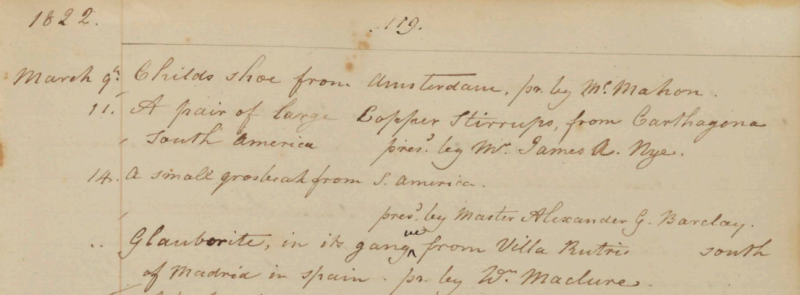 1822.
119.
March 9th Childs shoe from Amsterdam. pr. by Mr. Mahon.
11. A pair of large Copper Stirrups, from Carthagona
South America presd. by Mr. James R. Nye.
14. A small grosbeak from S. America.
presd. by Master Alexander G. Barclay.
" Glauborite, in its gangue from Villa Rutris south
of Madrid in Spain. pr. by Wm. Maclure.